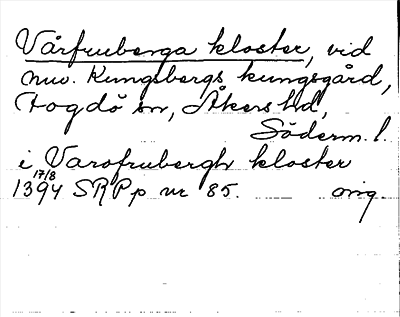 Vårfruberga kloster, vid
nuv. Kungsbergs kungsgård,
Fogdö sn, Åkers hd,
Söderm. l.
i Varofrubergh kloster
1394 17/8 SRPp nr 85. orig.